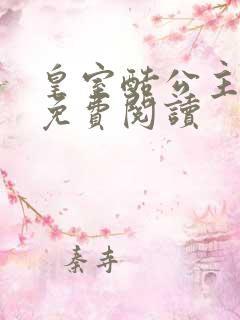 皇室酷公主
免費閱讀
秦寺